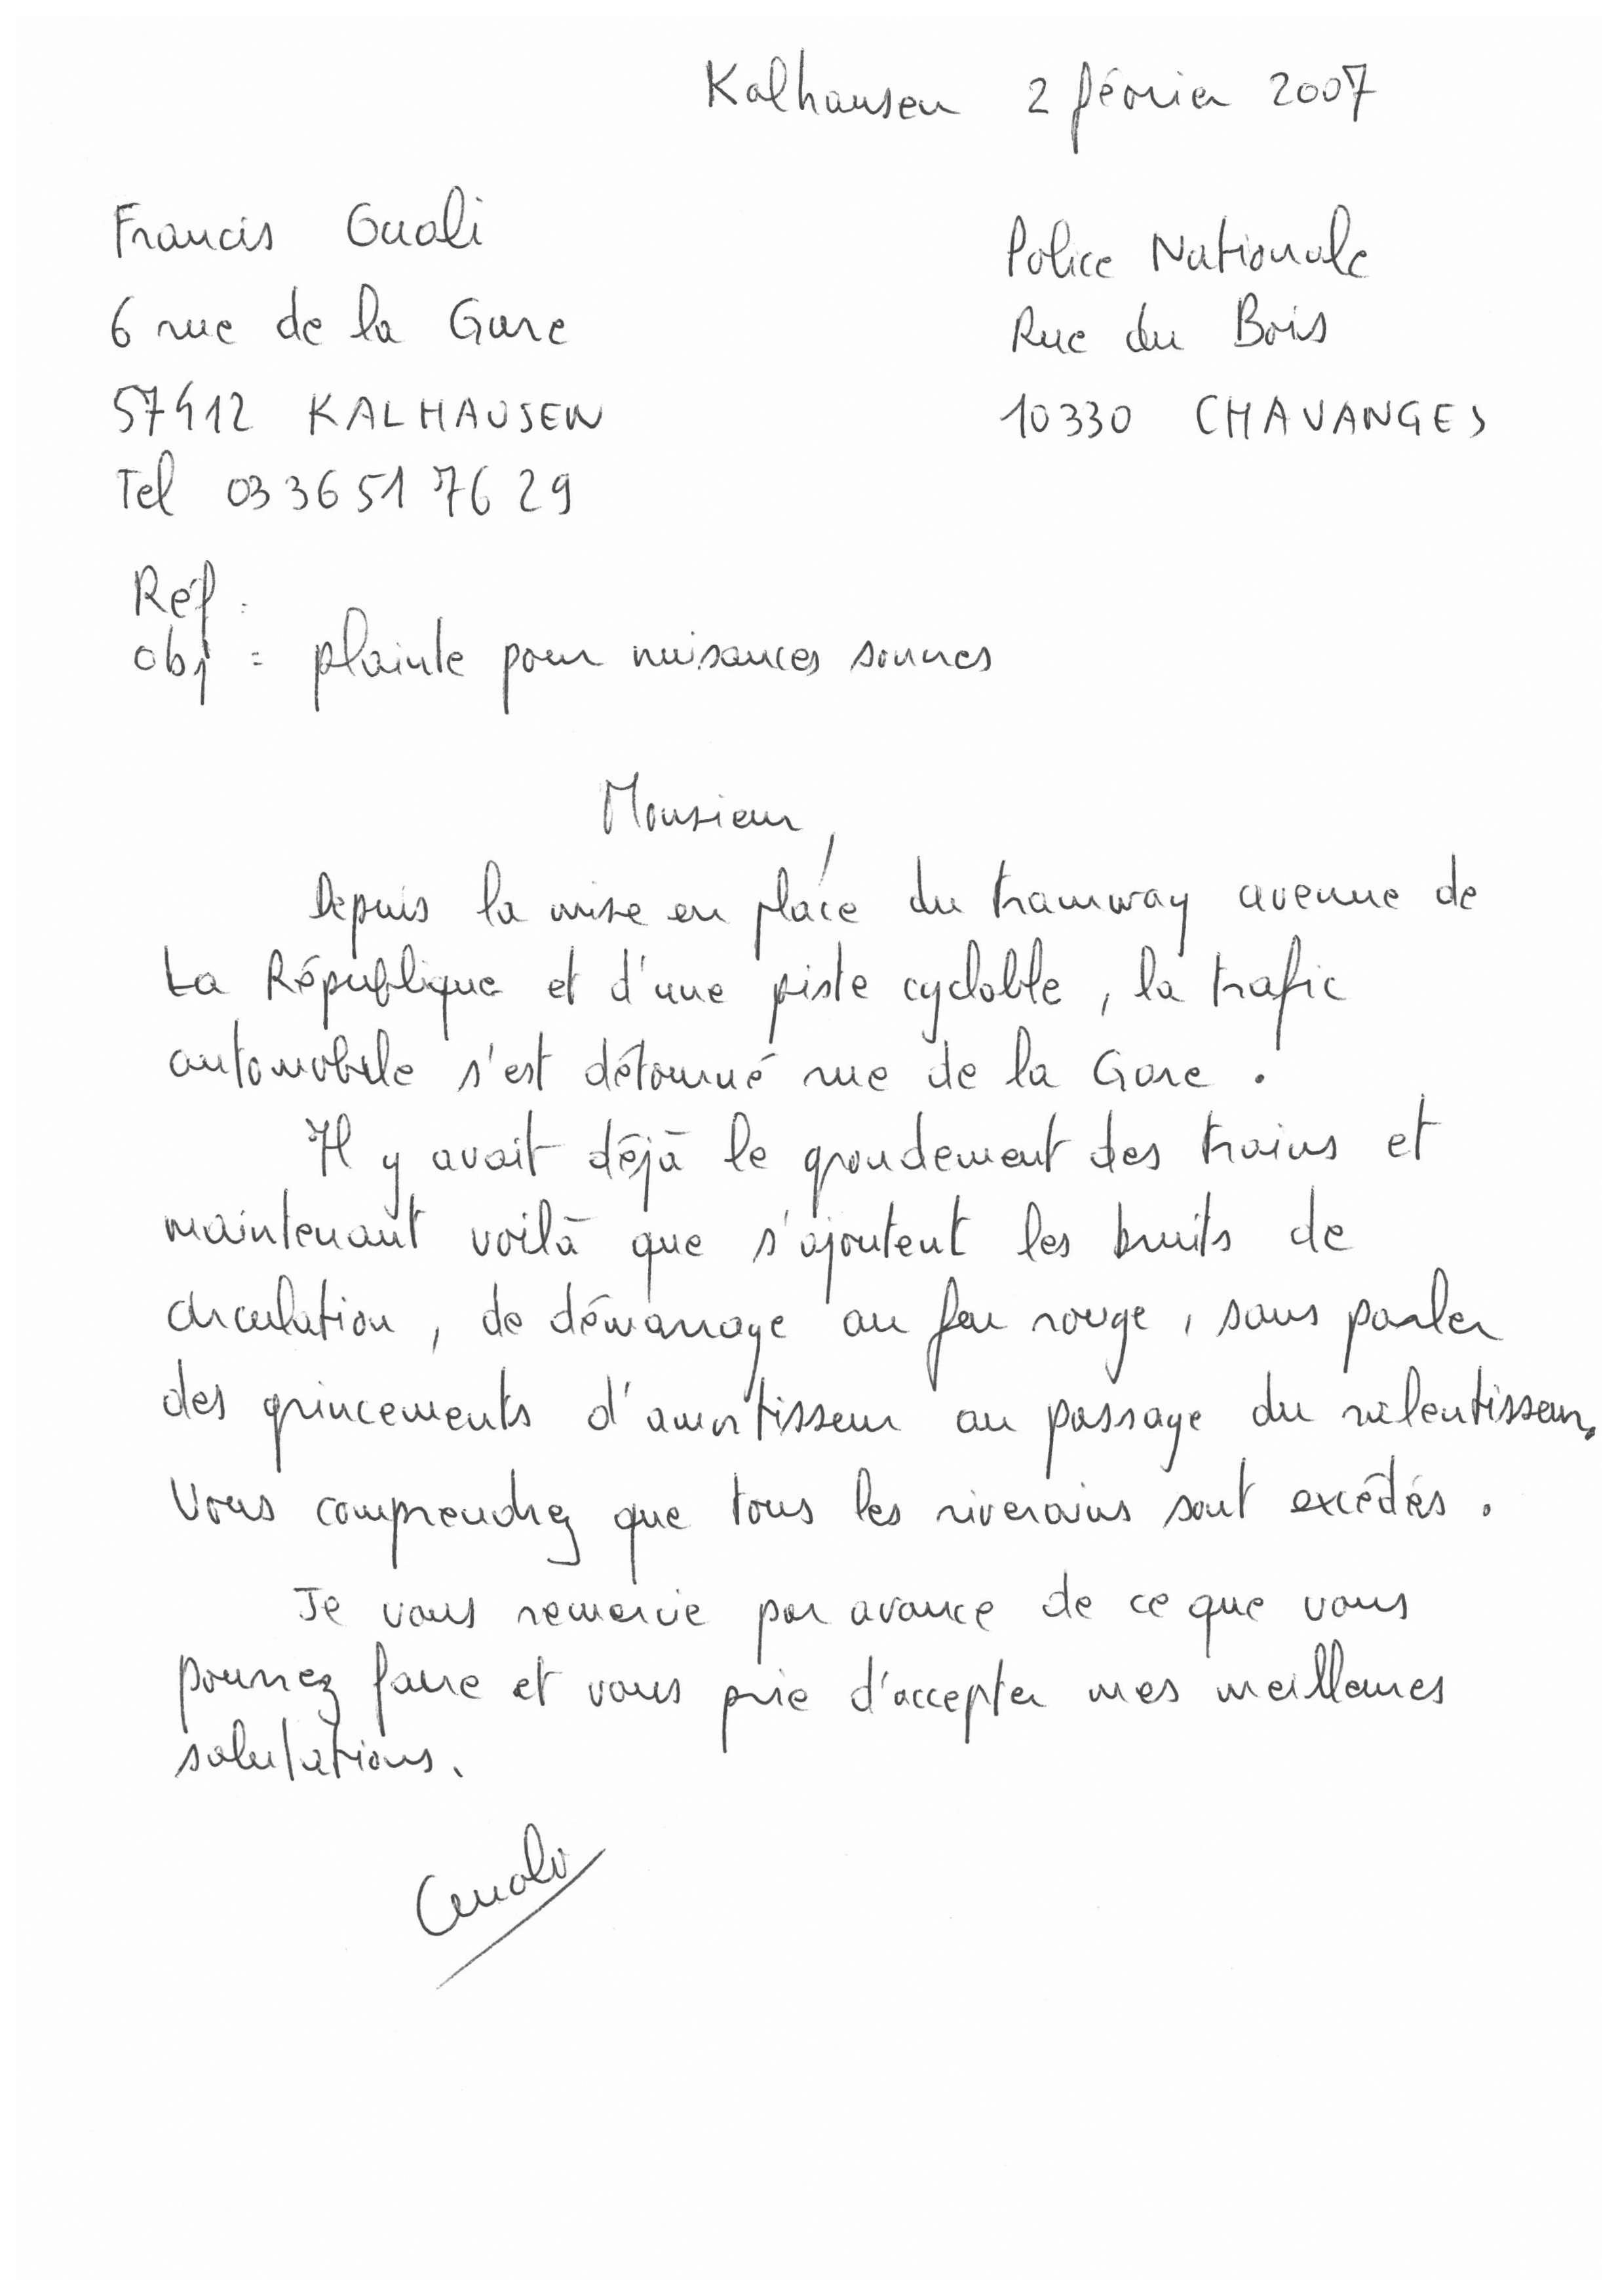 Kalhausen 2 février 2007
Francis Guali
6 rue de la Gare
57412 KALHAUSEN
Tel 03 36 51 76 29
Police Nationale
Rue du Bois
10330 CHAVANGES
Réf :
obj : plainte pour nuisances sonnes
Monsieur,
Depuis la mise en place du tramway avenue de
La République et d'une piste cyclable, la trafic
automobile s'est détourné rue de la Gare.
Il y avait déjà le grondement des trains et
maintenant voilà que s'ajoutent les bruits de
circulation, de démarrage au feu rouge, sans parler
des grincements d'amortisseur au passage du ralentisseur.
Vous comprendrez que tous les riverains sont excédés.
Je vous remercie par avance de ce que vous
pourrez faire et vous prie d'accepter mes meilleures
salutations.